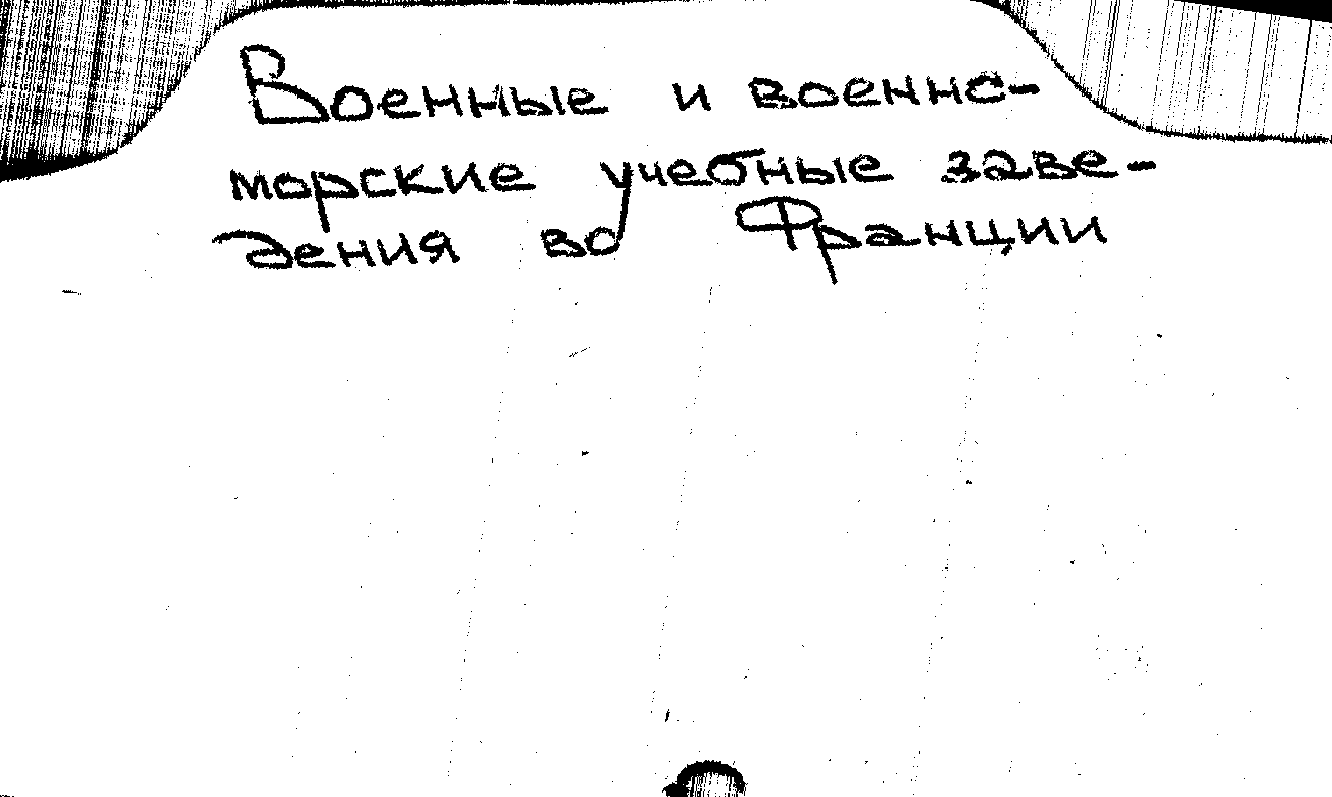 Военные и военно-
морские учебные заве-
дения во Франции